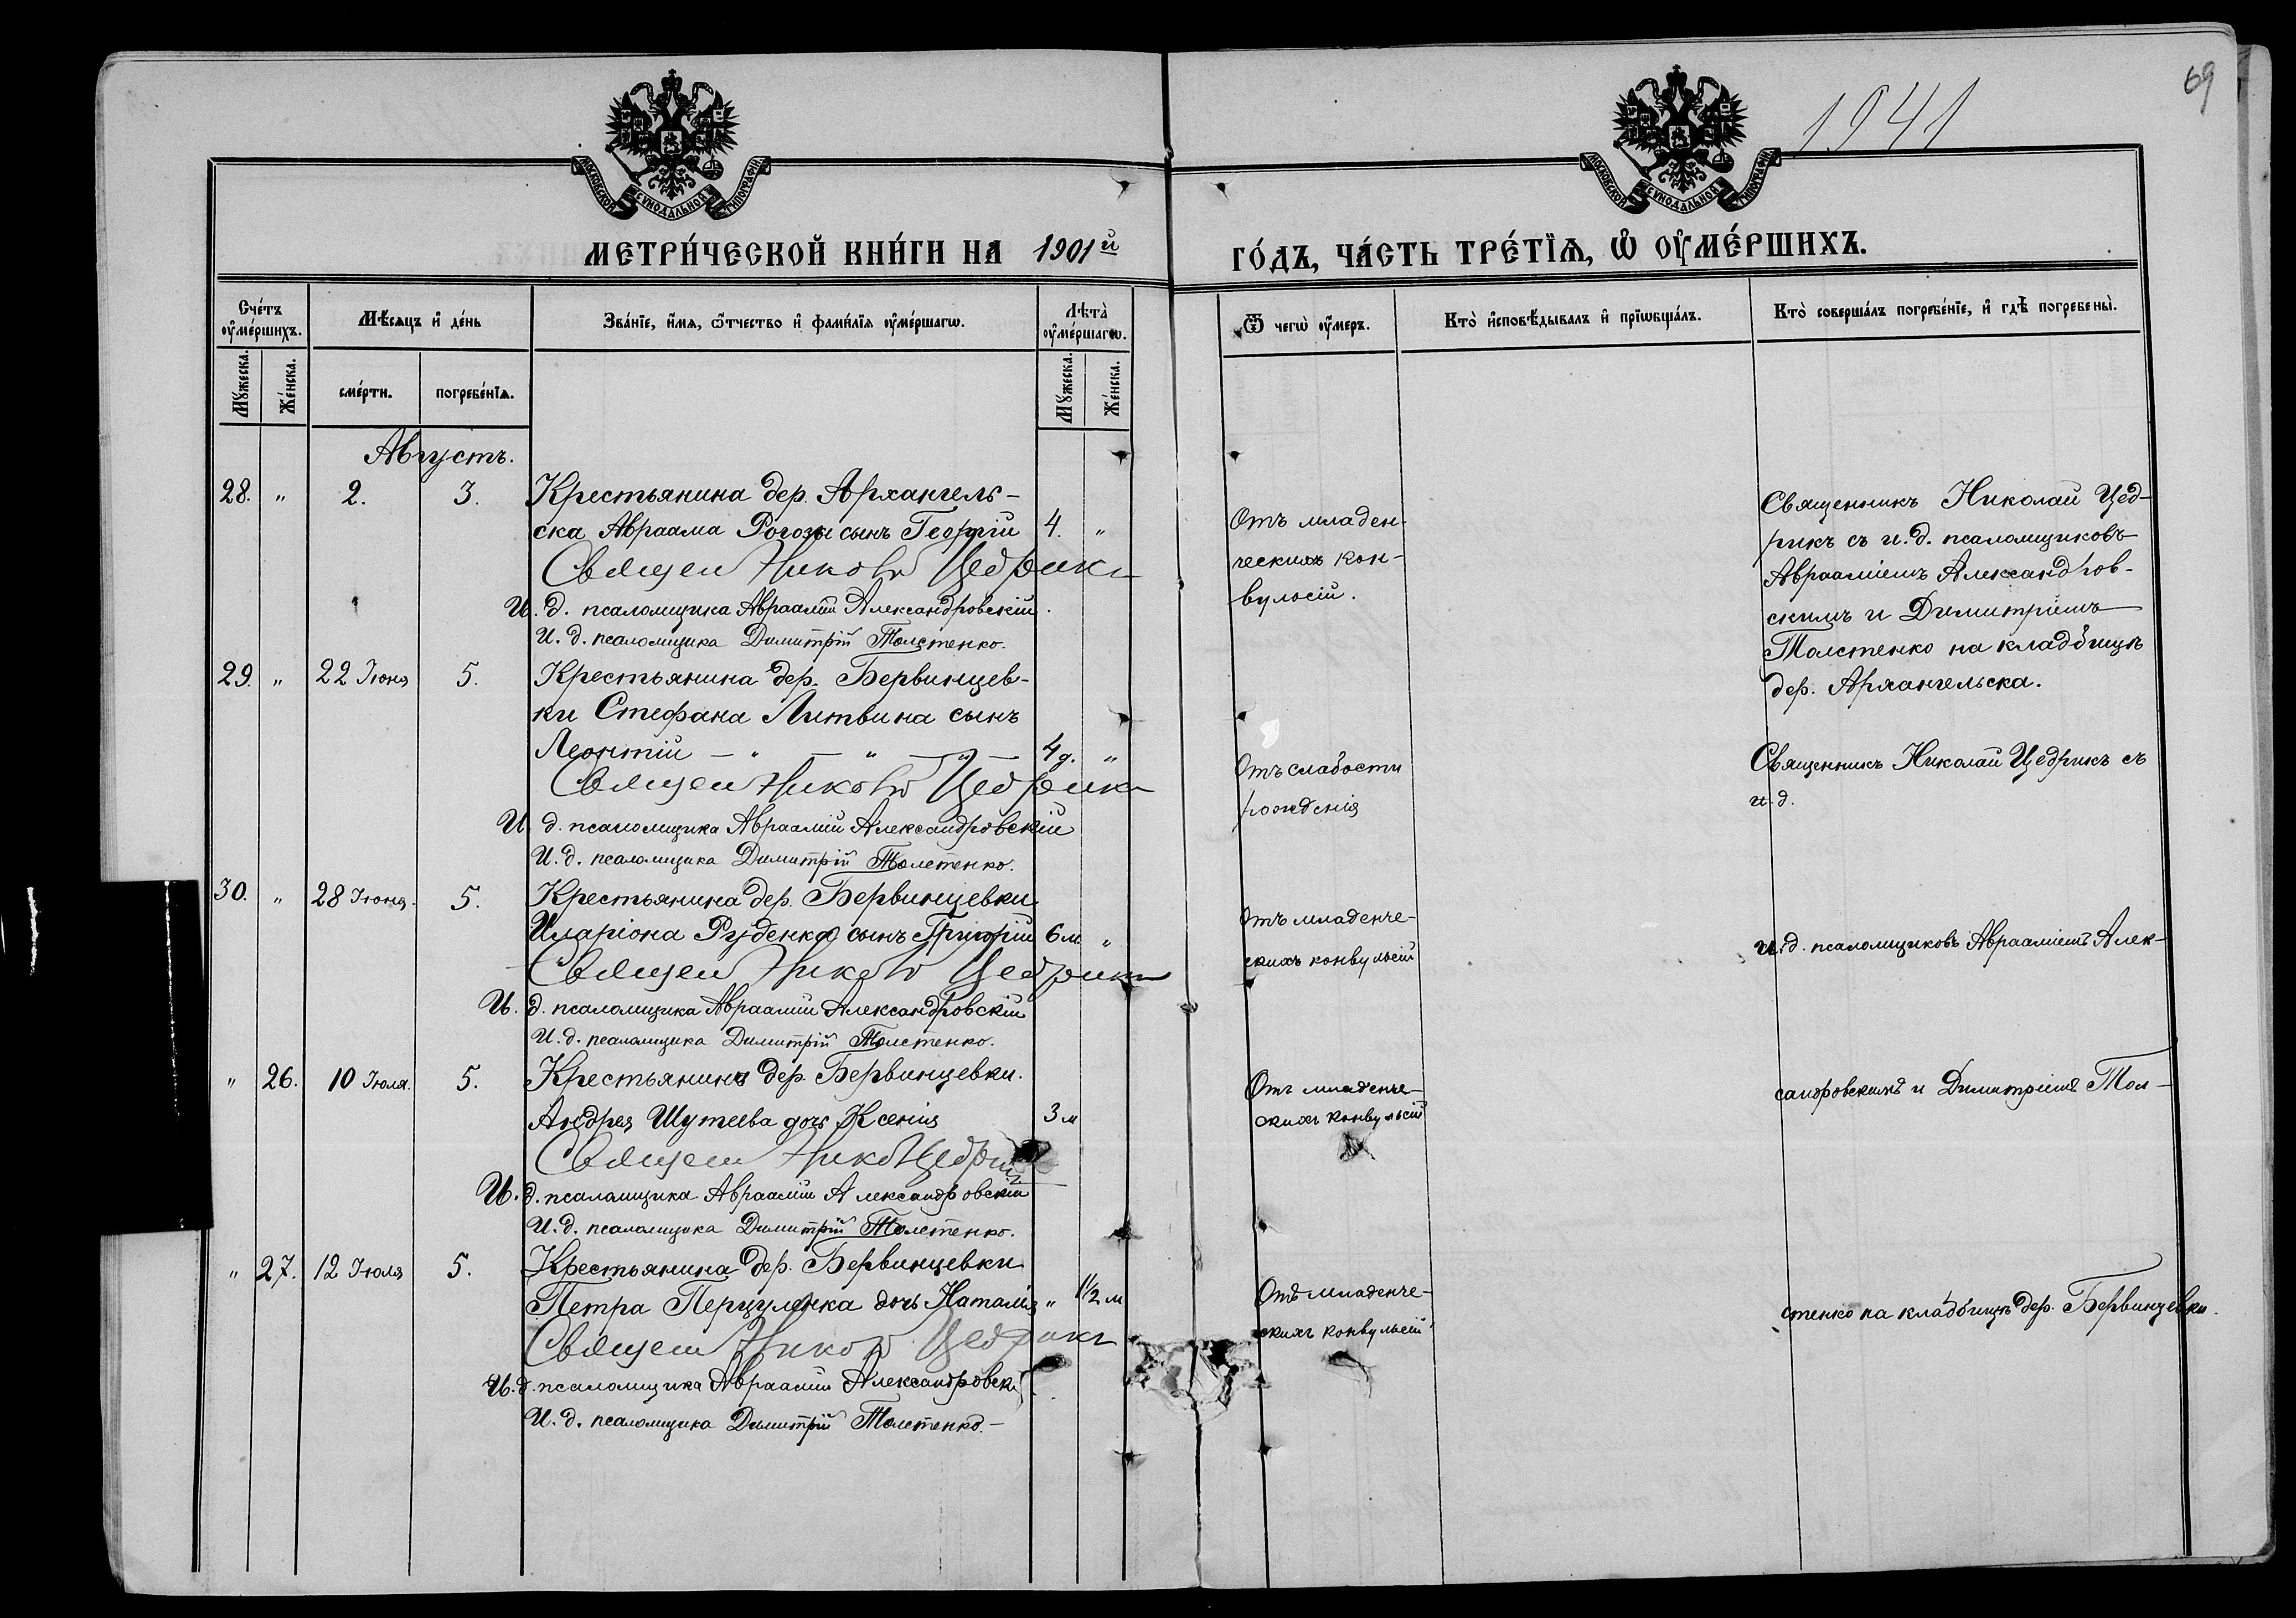 1941
69
МОСКОВСКОЙ СѴНОДАЛЬНОЙ ТИПОГРАФІИ
МОСКОВСКОЙ СѴНОДАЛЬНОЙ ТИПОГРАФІИ
МЕТРИ́ЧЕСКОЙ КНИ́ГИ НА 1901й
ГО́ДЪ, ЧА́СТЬ ТРЕ́ТЇѦ, Ѡ҆ ОУ҆МЕ́РШИХЪ.
Сче́тъ оу҆ме́ршихъ.
Мѣ́сяцъ и҆ де́нь
Зва́нїе, и҆́мѧ, ѻ҆́тчество и҆ фами́лїѧ оу҆ме́ршагѡ.
Лѣ́та оу҆ме́ршагѡ.
Ѿ чегѡ̀ оу҆́меръ.
Кто̀ и҆сповѣ́дывалъ и҆ прїѡбща́лъ.
Кто̀ соверша́лъ погребе́нїе, и҆ гдѣ̀ погребены̀.
Мꙋ́жеска.
Же́нска.
сме́рти.
погребе́нїѧ.
Мꙋ́жеска.
Же́нска.
Августъ.
28. " 2. 3. Крестьянина дер. Архангель-
ска Авраама Рогозы сынъ Георгій 4. "
Священ Никол Цедрикъ
И. д. псаломщика Авраамій Александровскій.
И. д. псаломщика Димитрій Толстенко.
Отъ младен-
ческихъ кон-
вульсій.
Священникъ Николай Цед-
рикъ съ и. д. псаломщиковъ
Авраамiемъ Александров-
скимъ и Димитріемъ
Толстенко на кладбищѣ
дер. Архангельска.
29. " 22 Іюня 5. Крестьянина дер. Бервинцев-
ки Стефана Литвина сынъ
Леонтій — " — " — " — 4 д. "
Священ Никол Цедрикъ
И. д. псаломщика Авраамій Александровскій
И. д. псаломщика Димитрій Толстенко.
Отъ слабости
рожденія
Священникъ Николай Цедрикъ съ
и. д.
30. " 28 Іюня. 5. Крестьянина дер. Бервинцевки
Иларіона Руденка сынъ Григорій 6 м "
Священ Никол Цедрикъ
И. д. псаломщика Авраамій Александровскій
И. д. псаломщика Димитрій Толстенко.
Отъ младенче-
скихъ конвульсій
и. д. псаломщиковъ Авраамiемъ Алек-
" 26. 10 Іюля. 5. Крестьянина дер. Бервинцевки.
Андрея Шутеева дочь Ксенія 3 м
Священ Нико Цедрикъ
И. д. псаломщика Авраамій Александровскій
И. д. псаломщика Димитрій Толстенко.
Отъ младенче-
скихъ конвульсій
сандровскимъ и Димитріемъ Тол-
" 27. 12 Іюля 5. Крестьянина дер. Бервинцевки
Петра Перцуленка дочь Наталія " 1½ м
Священ Никол Цедрикъ
И. д. псаломщика Авраамій Александровскій
И. д. псаломщика Димитрій Толстенко. —
Отъ младенче-
скихъ конвульсій
стенко на кладбищѣ дер. Бервинцевки.